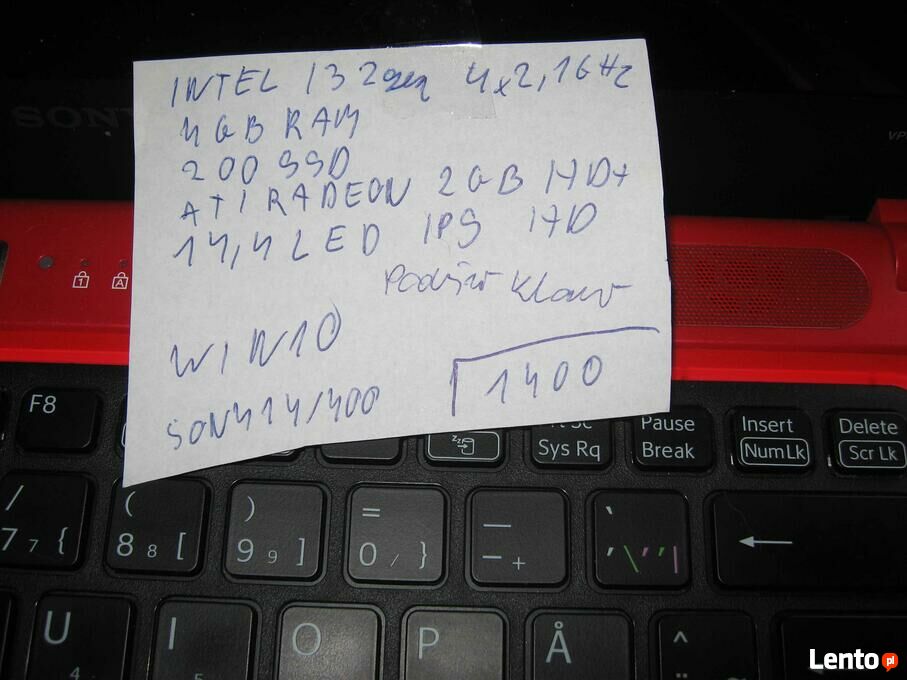 SONY
VP
INTEL I3 2gen 4x2,1GHz
4GB RAM
200 SSD
ATI RADEON 2GB HD+
14,4 LED IPS HD
Podśw Klaw
WIN10
1400
SONY 14/400
1
A
F8
Sc
Sys Rq
Pause
Break
Insert
Num Lk
Delete
Scr Lk
/
7 7 {
(
8 8 [
)
9 9 ]
=
0 / }
_
- +
`
' \ ' ' |
U
4
I
5
O
P
Å
^
¨
Lento pl